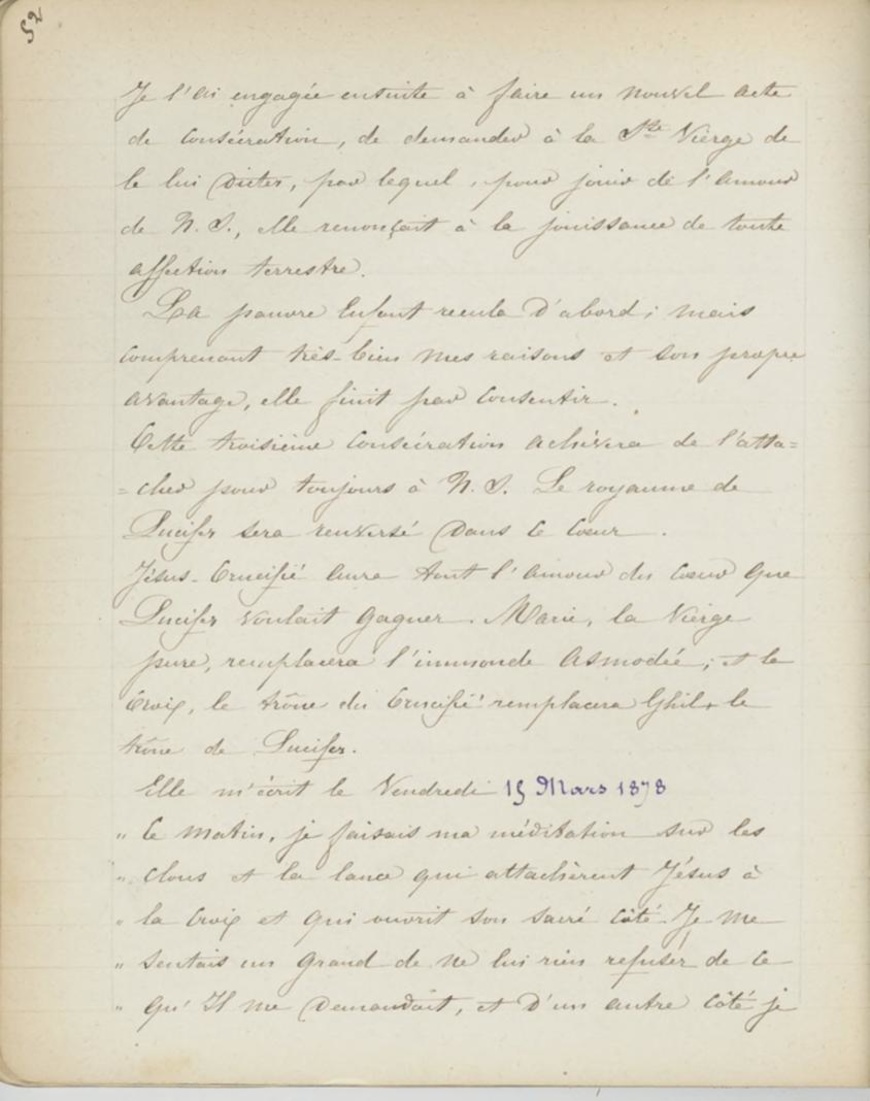 52
Je l'ai engagée ensuite à faire un nouvel acte
de Consécration, de demander à la Ste Vierge de
le lui Dicter, par lequel, pour jouir de l'amour
de N. S., elle renonçait à la jouissance de toute
affection terrestre.
La pauvre Enfant recula D'abord; mais
comprenant très-bien mes raisons et son propre
avantage, elle finit par Consentir.
Cette troisième Consécration achèvera de l'atta=
=cher pour toujours à N. S. Le royaume de
Lucifer sera renversé Dans ce Cœur.
Jésus-Crucifié aura tout l'amour du Cœur que
Lucifer voulait gagner. Marie, la Vierge
pure, remplacera l'immonde Asmodée; et la
Croix, le trône du Crucifié remplacera Ghil, le
trône de Lucifer.
Elle m'écrit le Vendredi 15 Mars 1878
" Ce matin, je faisais ma méditation sur les
" clous et la lance qui attachèrent Jésus à
" la Croix et qui ouvrit son sacré Côté. Je me
" sentais un grand de ne lui rien refuser de ce
" qu'Il me Demandait, et D'un autre Côté je